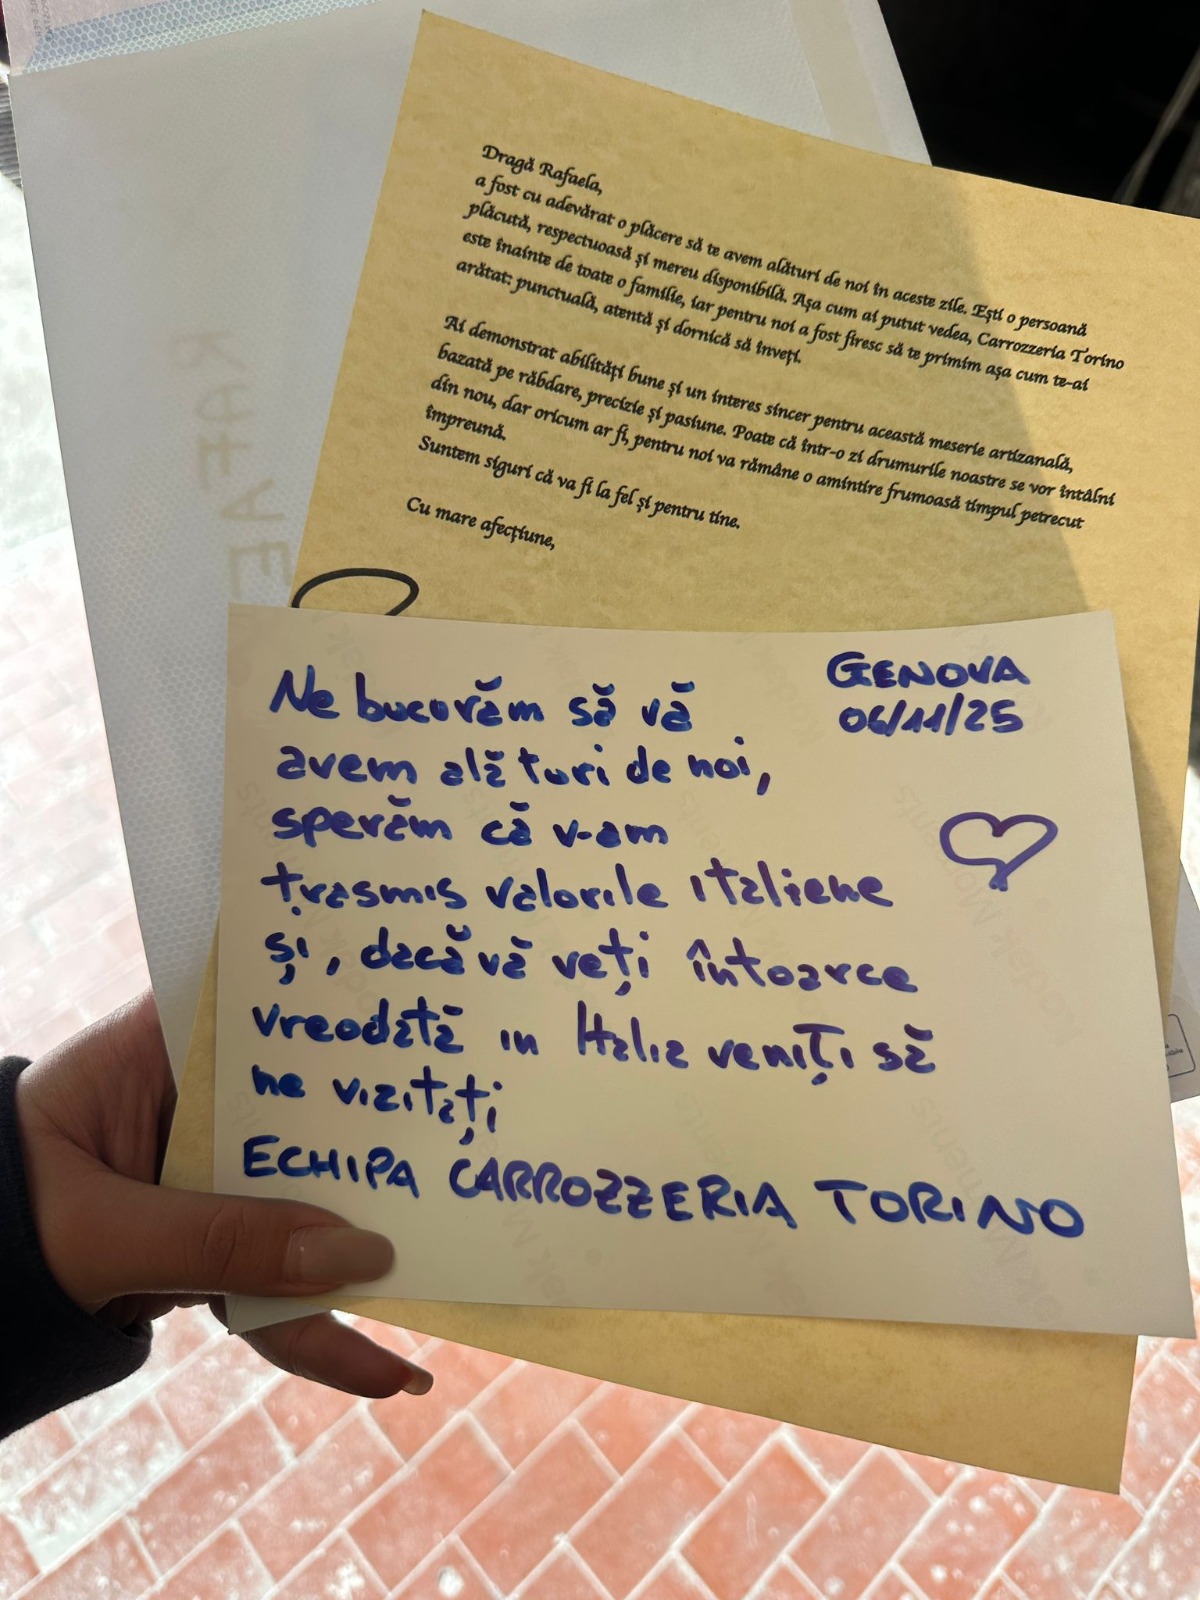 Dragă Rafaela,
a fost cu adevărat o plăcere să te avem alături de noi în aceste zile. Ești o persoană
plăcută, respectuoasă și mereu disponibilă. Așa cum ai putut vedea, Carrozzeria Torino
este înainte de toate o familie, iar pentru noi a fost firesc să te primim așa cum te-ai
arătat: punctuală, atentă și dornică să înveți.
Ai demonstrat abilități bune și un interes sincer pentru această meserie artizanală,
bazată pe răbdare, precizie și pasiune. Poate că într-o zi drumurile noastre se vor întâlni
din nou, dar oricum ar fi, pentru noi va rămâne o amintire frumoasă timpul petrecut
împreună.
Suntem siguri că va fi la fel și pentru tine.
Cu mare afecțiune,
GENOVA
06/11/25
Ne bucurăm să vă
avem alături de noi,
sperăm că v-am
trasmis valorile italiene
și, dacă vă veți întoarce
vreodată in Italia veniți să
ne vizitați
ECHIPA CARROZZERIA TORINO